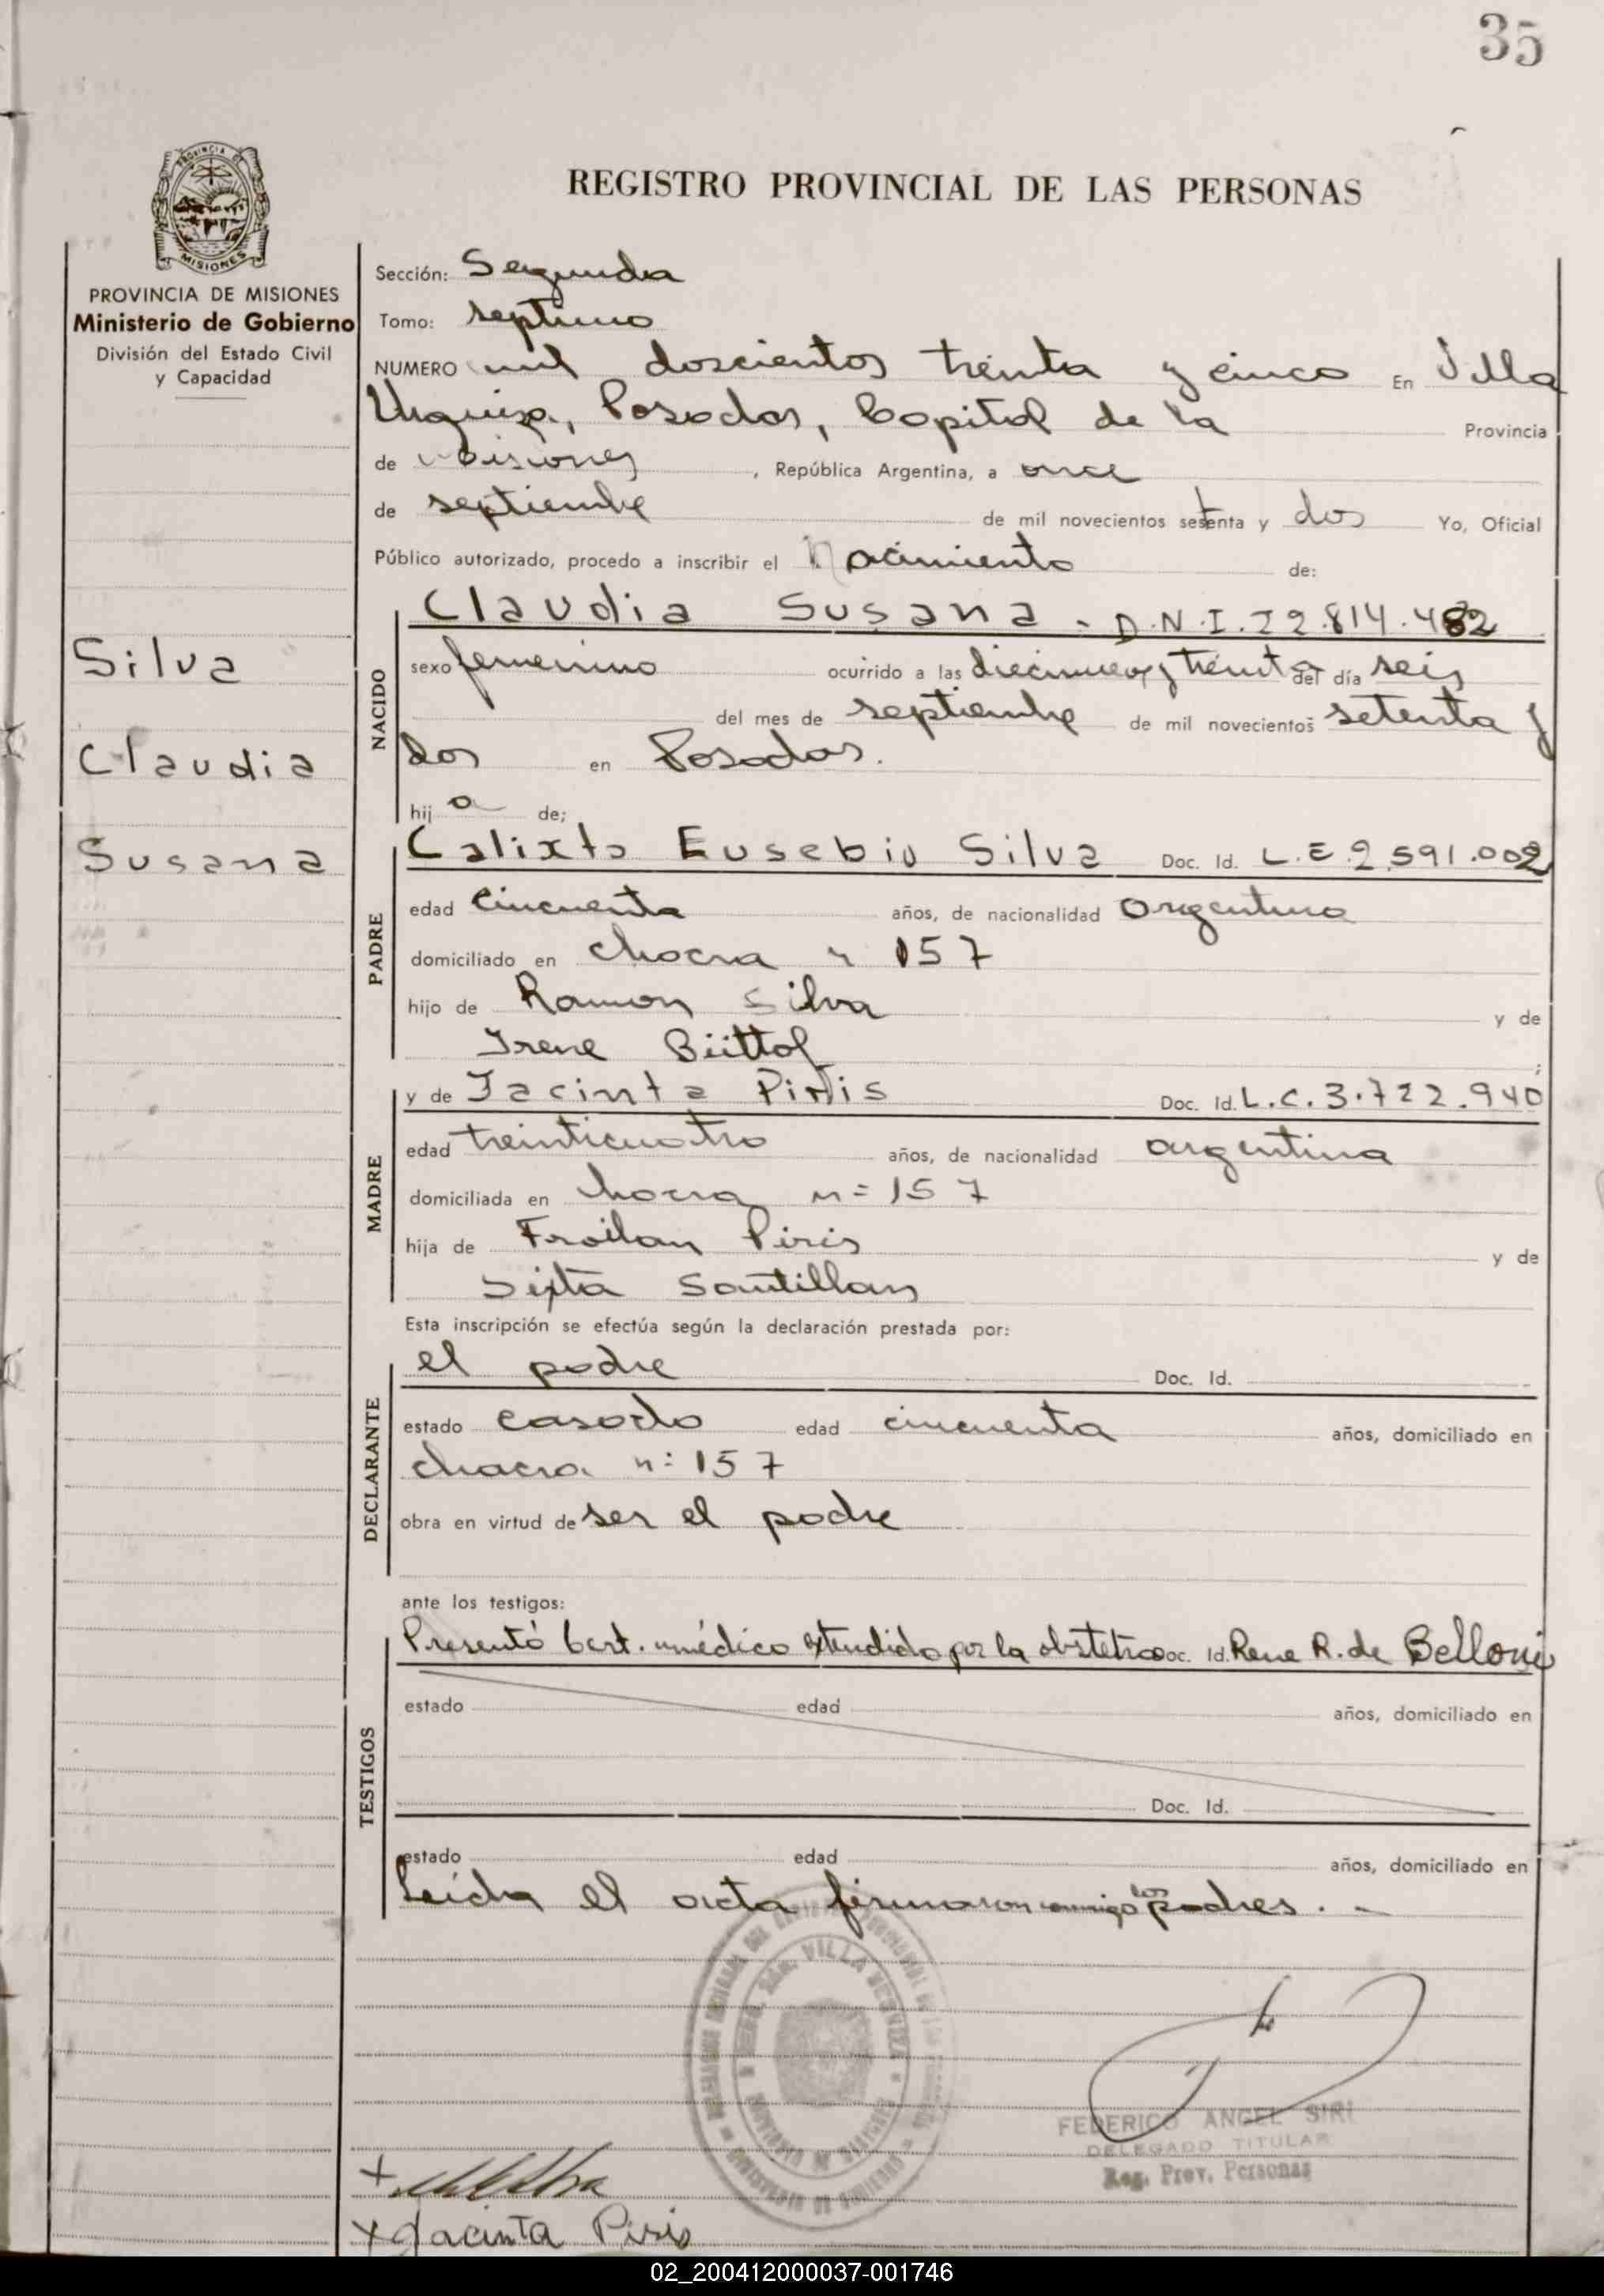 35
REGISTRO PROVINCIAL DE LAS PERSONAS
PROVINCIA DE MISIONES
Ministerio de Gobierno
División del Estado Civil
y Capacidad
Sección: Segunda
Tomo: septimo
NUMERO mil doscientos treinta y cinco En Villa
Urquiza, Posadas, Capital de la Provincia
de Misiones, República Argentina, a once
de septiembre de mil novecientos setenta y dos Yo, Oficial
Público autorizado, procedo a inscribir el Nacimiento de:
Silva
Claudia
Susana
NACIDO
Claudia Susana - D.N.I. 22.814.482
sexo femenino ocurrido a las diecinueve y treinta del día seis
del mes de septiembre de mil novecientos setenta y
dos en Posadas.
hija de;
PADRE
Calixto Eusebio Silva Doc. Id. L.E. 2.591.002
edad cincuenta años, de nacionalidad argentina
domiciliado en chacra n 157
hijo de Ramon Silva y de
Irene
MADRE
y de Jacinta Piris Doc. Id. L.C. 3.722.940
edad treinticuatro años, de nacionalidad argentina
domiciliada en chacra n= 157
hija de Froilan Piris y de
Sixta Santillan
Esta inscripción se efectúa según la declaración prestada por:
DECLARANTE
el padre Doc. Id.
estado casado edad cincuenta años, domiciliado en
chacra n: 157
obra en virtud de ser el padre
ante los testigos:
TESTIGOS
Presentó Cert. médico extendido por la obstetra Doc. Id. Rene R. de Belloni
estado edad años, domiciliado en
Doc. Id.
estado edad años, domiciliado en
Leida el acta firmaron conmigo los padres. -
FEDERICO ANGEL SIRI
DELEGADO TITULAR
Reg. Prov. Personas
x Jacinta Piris
02_200412000037-001746